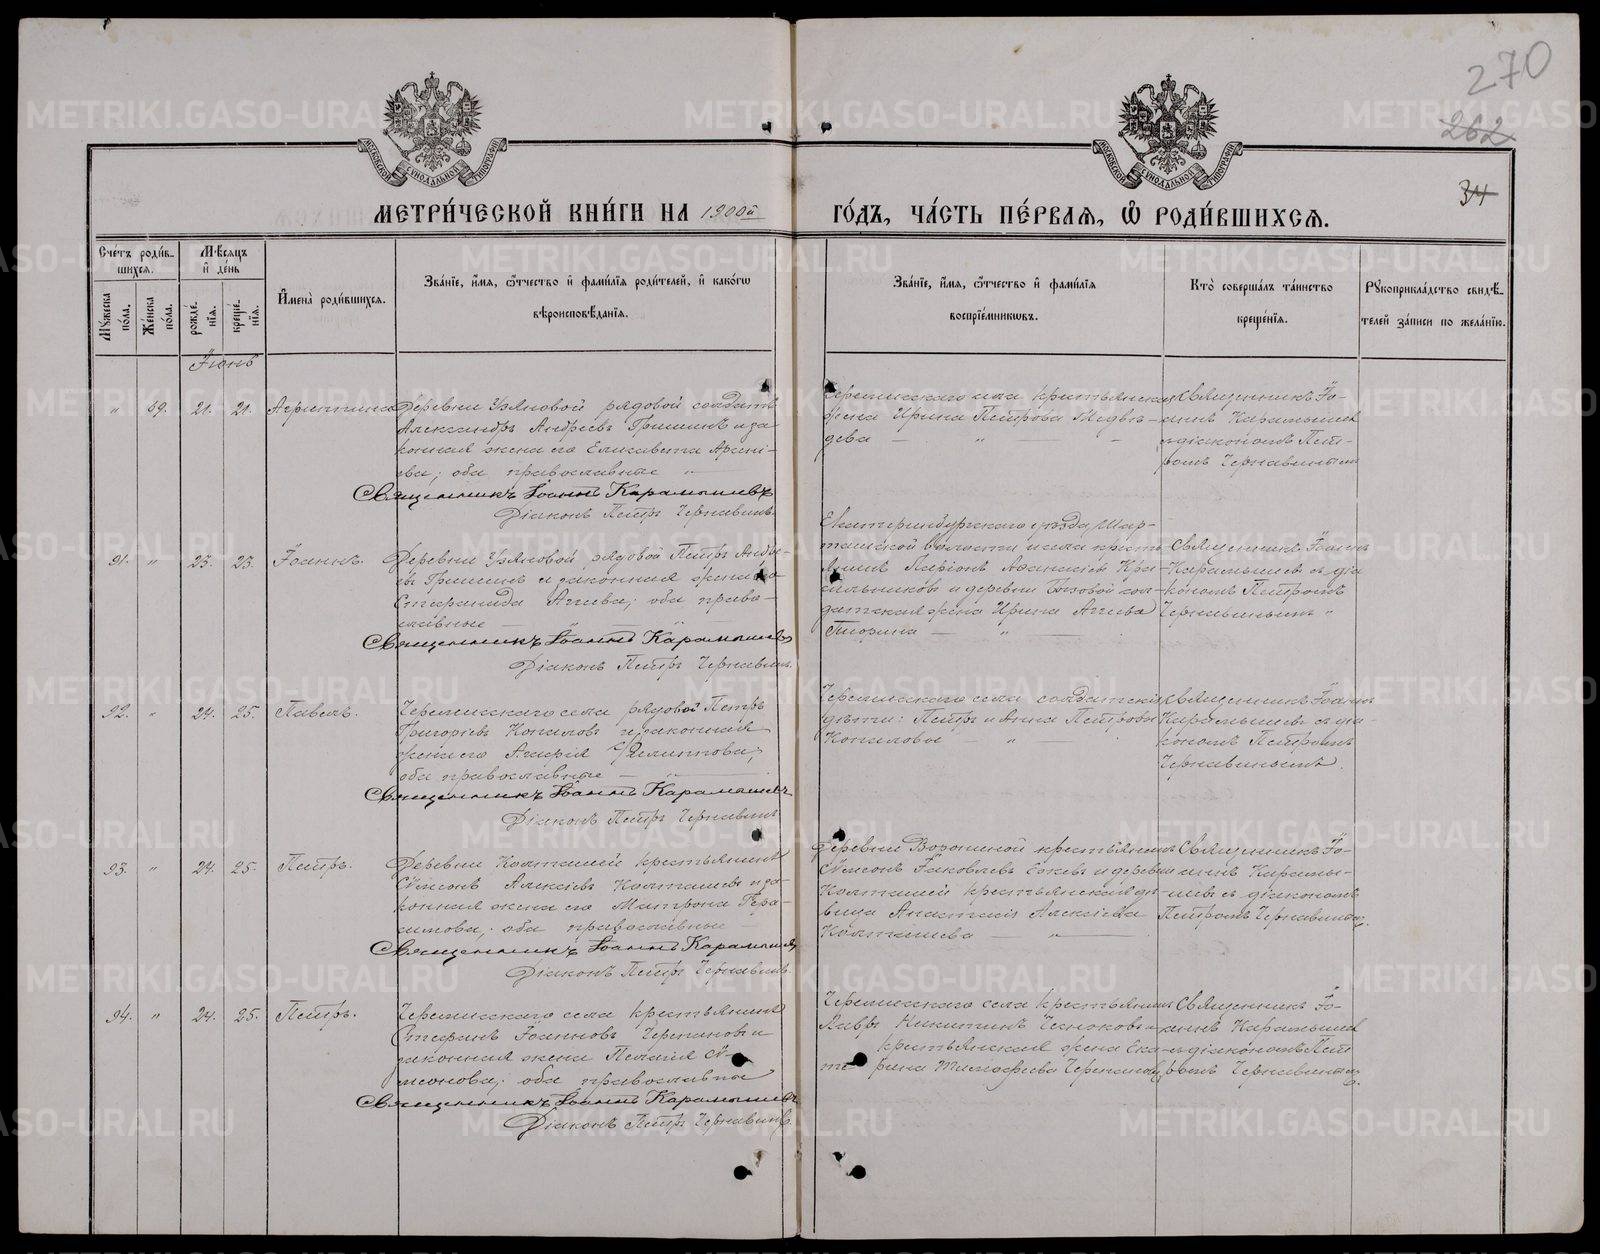 270
262
34
МОСКОВСКОЙ СУНОДАЛЬНОЙ ТИПОГРАФІИ
МОСКОВСКОЙ СУНОДАЛЬНОЙ ТИПОГРАФІИ
МЕТРИ́ЧЕСКОЙ КНИ́ГИ НА 1900й
ГО́ДЪ, ЧА́СТЬ ПЕ́РВАѦ, Ѿ РОДИ́ВШИХСѦ.
Сче́тъ роди́в-
шихся.
Мꙋжеска по́ла.
Же́нска по́ла.
Мѣсяцъ
и́ де́нь
рожде́нїя.
креще́нїя.
И҆мена̀ родившихся.
Зва́нїе, и́мя, ѻ҆́тчество и҆ фами́лїя роди́телей, и҆ како́гѡ
вѣроисповѣ́данїя.
Зва́нїе, и́мя, ѻ҆́тчество и҆ фами́лїя
воспрїе́мникѡвъ.
Кто̀ соверша́лъ та́инство
креще́нїя.
Рꙋкоприкла́дство свидѣ́-
телей за́писи по жела́нїю.
Іюнь
„ 69. 21. 21. Агриппина
Деревни Узяновой рядовой солдатъ
Александръ Андреевъ Гришинъ и за-
конная жена его Елисавета Архи-
ова; оба православные „
Священникъ Іоаннъ Карамышевъ
Діаконъ Петръ Чернавинъ.
Черемисского села крестьянская
жена Ирина Петрова Медвѣ-
дева — „ — -
Священникъ Іо-
аннъ Карамышев
съ діакономъ Пет-
ромъ Чернавинымъ
91. „ 23. 23. Іоаннъ.
Деревни Узяновой рядовой Петръ Андре-
евъ Гришинъ и законная жена его
Степанида Агиева; оба право-
славные —
Священникъ Іоаннъ Карамышевъ
Діаконъ Петръ Чернавинъ.
Екатеринбургского уѣзда, Шар-
ташской волости и села кресть-
янинъ Ларіонъ Афанасіев Кра-
сильниковъ и деревни сол-
датская жена Ирина Агиева
— „ —
Священникъ Іоаннъ
Карамышевъ съ діа-
кономъ Петромъ
Чернавинымъ „
92. „ 24. 25. Павелъ.
Черемисского села рядовой Петръ
Григорьев Копыловъ и законная
жена его Агафія Филиппова;
оба православные —
Священникъ Іоаннъ Карамышевъ
Діаконъ Петръ Чернавинъ
Черемисского села солдатскія
дѣти: Петръ и Анна Петровы
Копыловые — „ —
Священникъ Іоаннъ
Карамышевъ съ діа-
кономъ Петромъ
Чернавинымъ.
93. „ 24. 25. Петръ.
Деревни Колташей крестьянинъ
Сѵмеонъ Алексіевъ Колташевъ и за-
конная жена его Матрона Гера-
симова; оба православные —
Священникъ Іоаннъ Карамышевъ
Діаконъ Петръ Чернавинъ.
Деревни Ворониной крестьянинъ
Сѵмеонъ Іаковлевъ и деревни
Колташей крестьянская дѣ-
вица Анастасія Алексіева
Колташева — „ —
Священникъ Іо-
аннъ Карамы-
шевъ съ діакономъ
Петромъ Чернавинымъ.
94. „ 24. 25. Петръ.
Черемисского села крестьянинъ
Стефанъ Іоанновъ Черепановъ и
законная жена Пелагія Сѵ-
меонова; оба православные
Священникъ Іоаннъ Карамышевъ
Діаконъ Петръ Чернавинъ.
Черемисского села крестьянинъ
Лавръ Никитинъ Чесноковъ и
крестьянская жена Ека-
те рина Тимофеева Черепанова
Священникъ Іо-
аннъ Карамышев
съ діакономъ Пет
ромъ Чернавинымъ.